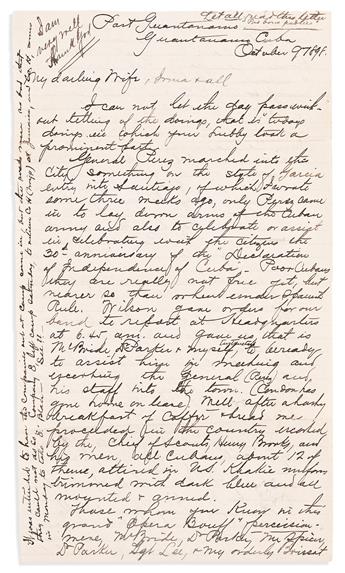 Let all read this letter
Port Guantanamo
Guantanamo Cuba
October 9th 1898.
My darling Wife, Irma & all
I can not let the day pass with-
out telling of the doings, that is to-days
doings in which your hubby took a
prominent part.
General Perez marched into the
City something on the style of Garcia
entry into Santiago, of which I wrote
some three weeks ago, only Perez came
in to lay down arms of the Cuban
army and also to celebrate or assist
in celebrating with the citizens the
30th anniversary of the "Declaration
of Independence of Cuba". Poor Cubans
they are really not free yet, but
nearer so than when under Spanish
Rule. Wilson gave orders for our
band to report at Headquarters
at 6.45 a.m. and gave us that is
McBride, Parker & myself to be ready
to assist him in meeting and
escorting the General (Perez) and
his staff into the town. Condon has
gone home on leave. Well after a hasty
breakfast of Coffee & bread we
proceeded in the country escorted
by the Chief of Scouts, Henry Brooks, and
his men, all Cubans, about 12 of
them, attired in U.S. Khakie uniforms
trimmed with dark blue and all
mounted & armed.
Those whom you know in this
grand "Opera Bouff" percission
were, McBride, Dr Parker, Mr Spicer,
Dr Parker, Sgt Lee, & my orderly
I am
very well
thank God